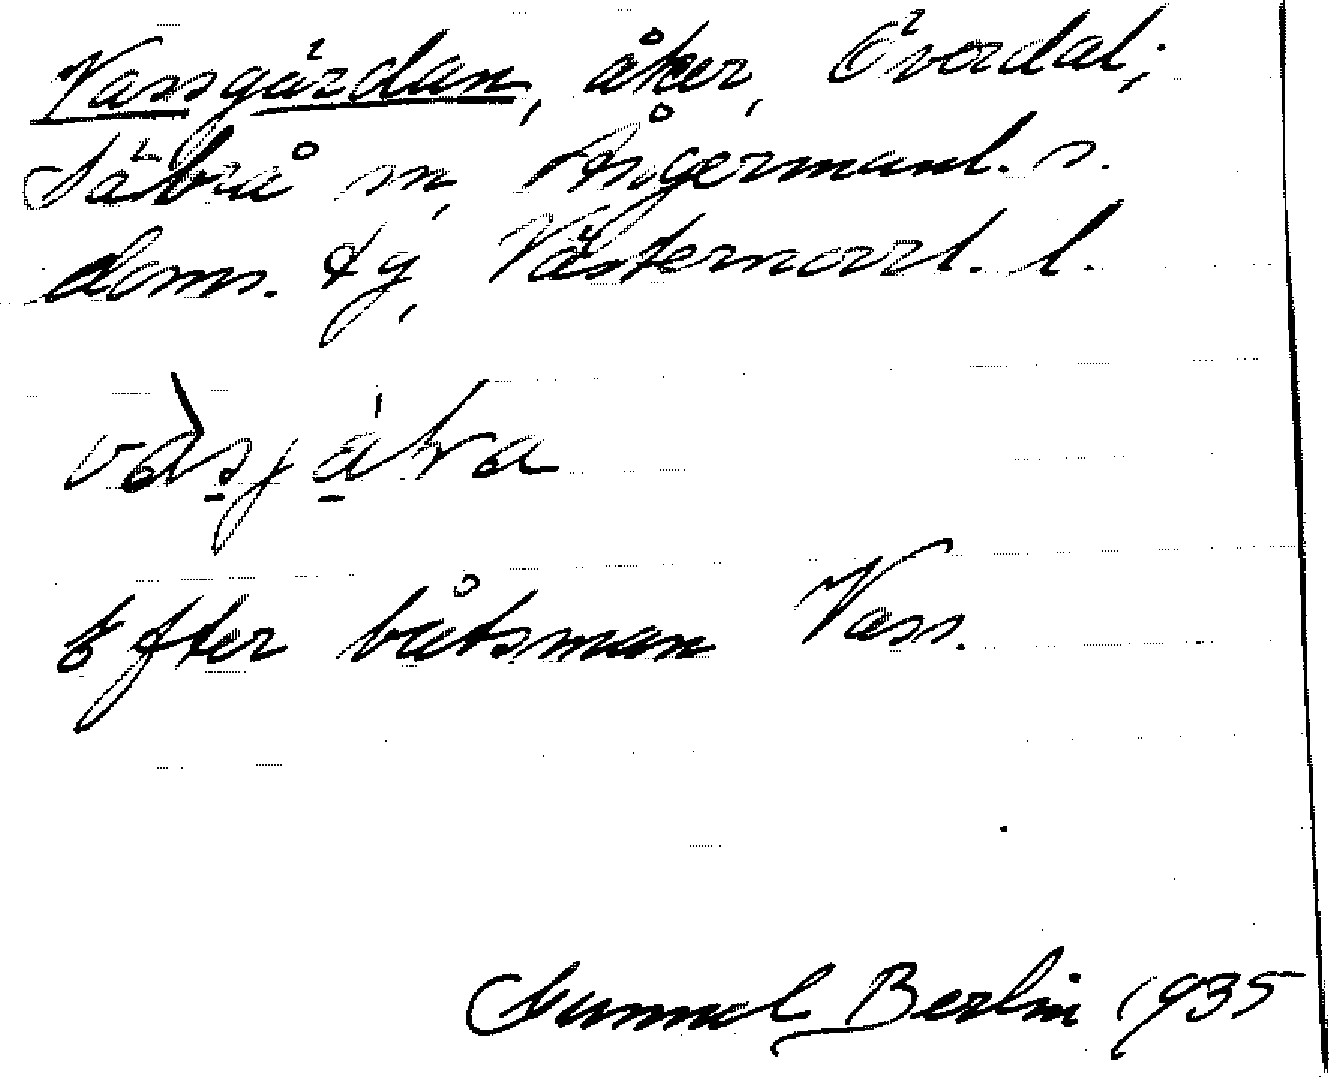 Vassgärdan, åker, Överdal,
Säbrå sn, Ångermanl. s.
doms. tg, Västernorrl. l.
vàsjáʹka
Efter båtsman Vass.
Gunnel Berlin 1935